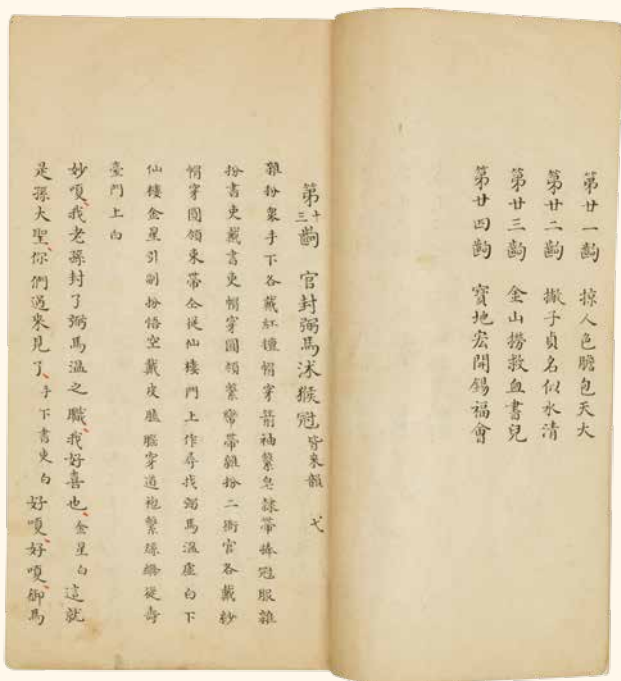 第廿一齣 掠人色膽包天大
第廿二齣 撇子貞名似水清
第廿三齣 金山撈救血書兒
第廿四齣 寶地宏開錫福會
第十三齣 官封弼馬沐猴冠 皆來韻 弋
雜扮衆手下各戴紅氊帽穿箭袖繫皂隸帶捧冠服雜
扮書吏戴書吏帽穿圓領繫鸞帶雜扮二衙官各戴紗
帽穿圓領束帶仝從仙樓門上作尋找弼馬溫虛白下
仙樓金星引副扮悟空戴皮臉腦穿道袍繫絲縧從壽
臺門上白
妙嗄、我老孫封了弼馬溫之職、我好喜也、金星白 這就
是孫大聖、你們過來見了、手下書吏白 好嗄、好嗄、御馬